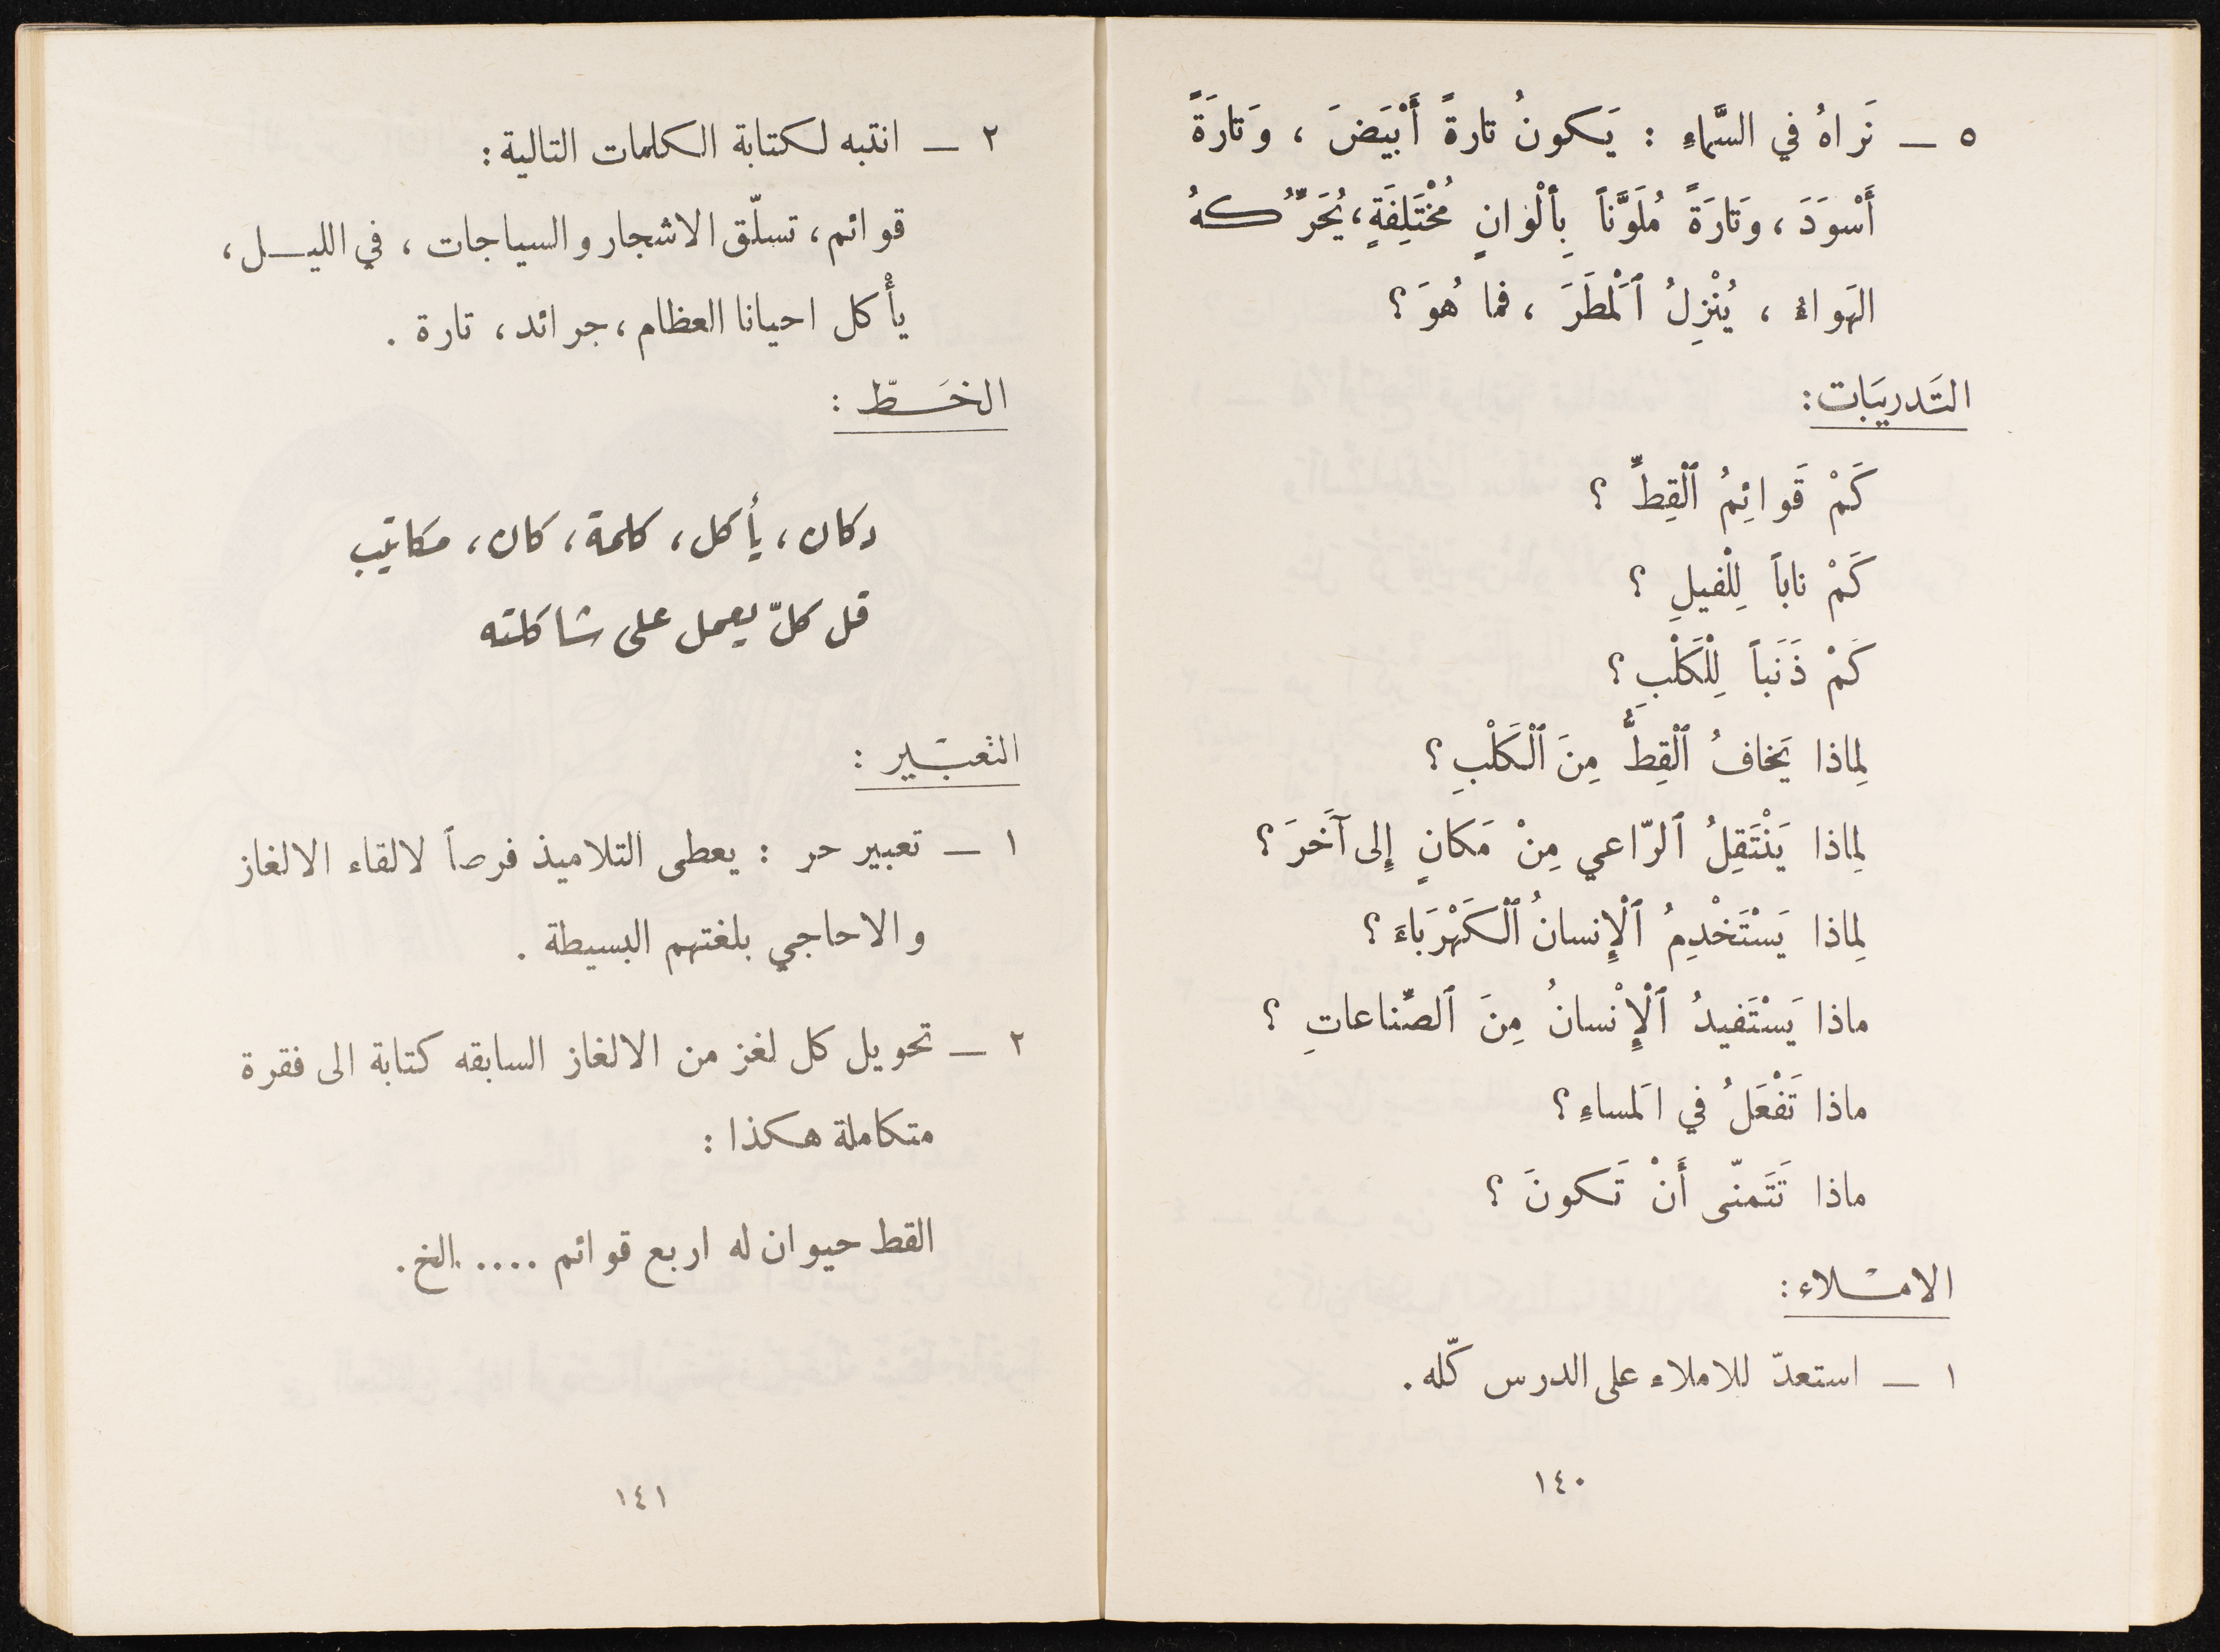 ٥ ـ نَراهُ في السَّماءِ : يَكونُ تارةً أَبْيَضَ ، وَتارَةً
أَسْوَدَ ، وَتارَةً مُلَوَّناً بِألْوانٍ مُخْتَلِفَةٍ ، يُحَرِّكهُ
الهَواءُ ، يُنْزِلُ ٱلْمَطَرَ ، فما هُوَ ؟
التَدريبَات :
كَمْ قَوائِمُ ٱلْقِطِّ ؟
كَمْ ناباً لِلْفيلِ ؟
كَمْ ذَنَباً لِلْكَلْبِ ؟
لِماذا يَخافُ ٱلْقِطُّ مِنَ ٱلْكَلْبِ ؟
لِماذا يَنْتَقِلُ ٱلرّاعي مِنْ مَكانٍ إِلى آخَرَ ؟
لِماذا يَسْتَخْدِمُ ٱلْإِنسانُ ٱلْكَهْرَباءَ ؟
ماذا يَسْتَفيدُ ٱلْإِنْسانُ مِنَ ٱلصِّناعاتِ ؟
ماذا تَفْعَلُ في المَساءِ ؟
ماذا تَتَمنّى أَنْ تَكونَ ؟
الامـلاء :
١ ـ استعدّ للاملاء على الدرس كلّه .
١٤٠
٢ ـ انتبه لكتابة الكلمات التالية :
قوائم ، تسلّق الاشجار والسياجات ، في الليـل ،
يأْكل احيانا العظام ، جرائد ، تارة .
الخَـطّ :
دكان ، يأكل ، كلمة ، كان ، مكاتيب
قل كلّ يعمل على شاكلته
التعبَـير :
١ ـ تعبير حر : يعطى التلاميذ فرصاً لالقاء الالغاز
والاحاجي بلغتهم البسيطة .
٢ ـ تحويل كل لغز من الالغاز السابقه كتابة الى فقرة
متكاملة هكذا :
القط حيوان له اربع قوائم .... الخ .
١٤١